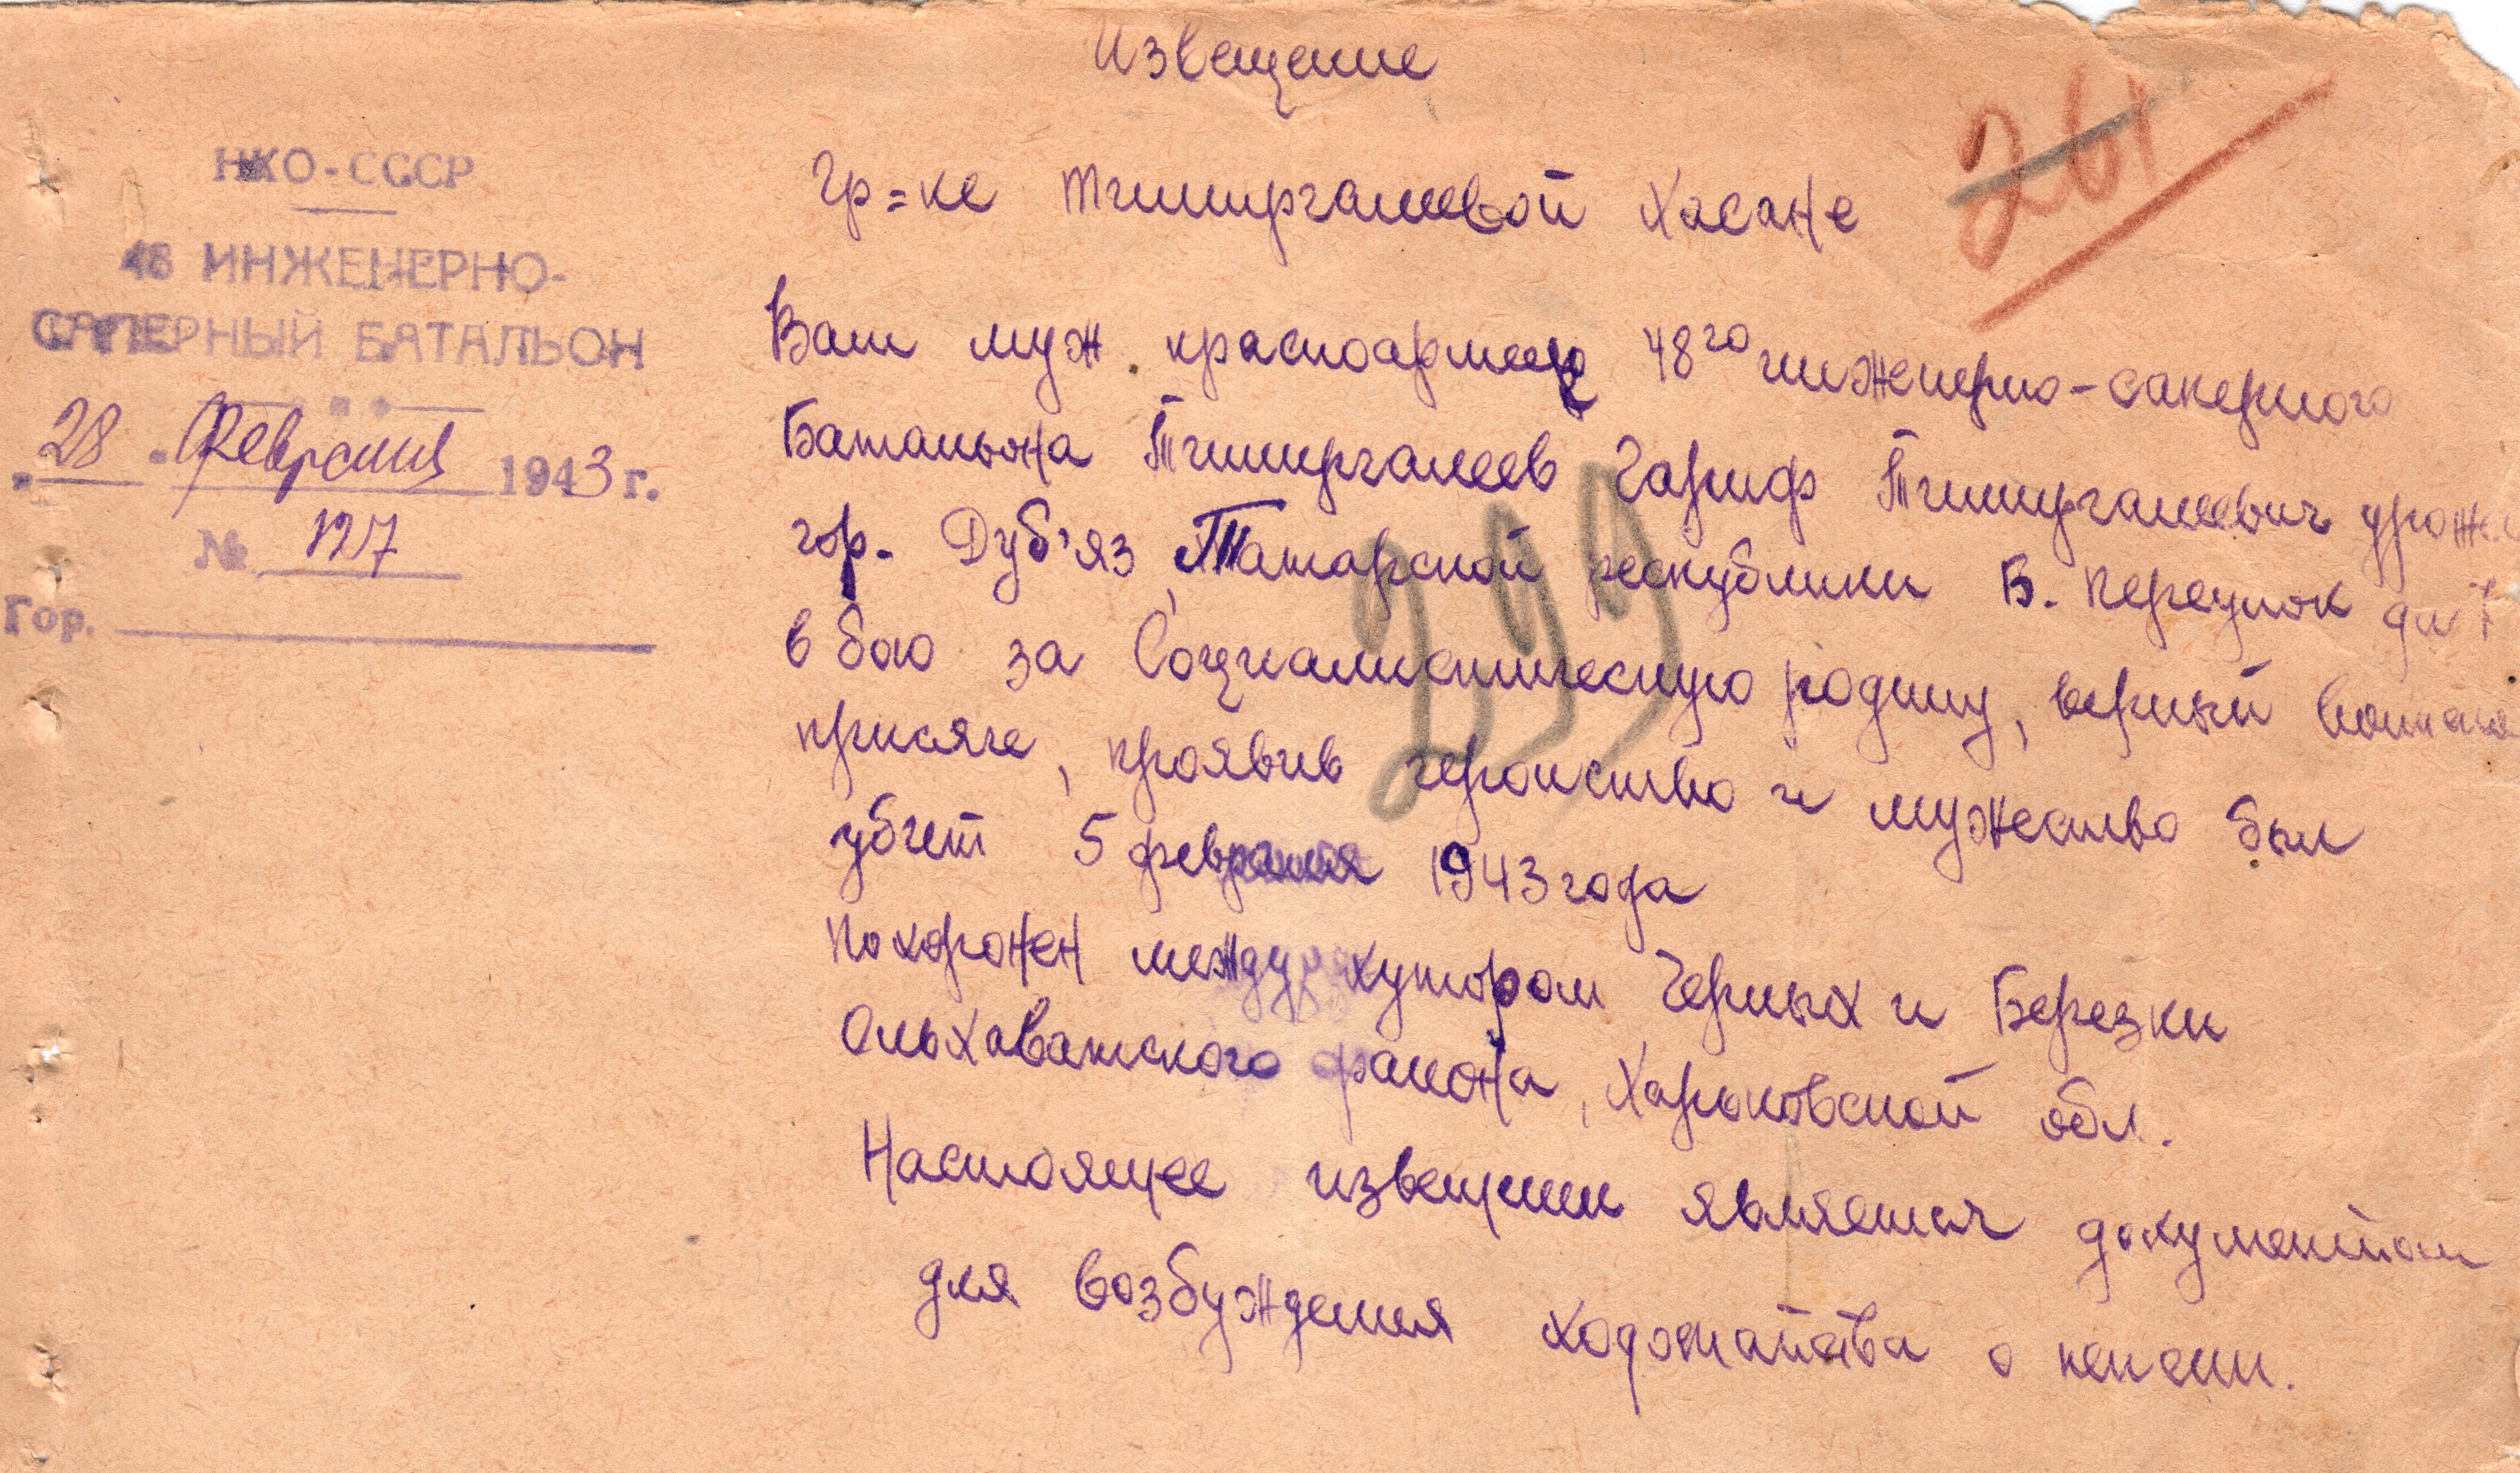 Извещение
261
НКО-СССР
48 ИНЖЕНЕРНО-
САПЕРНЫЙ БАТАЛЬОН
"28" Февраля 1943 г.
№ 127
Гор.
Гр=ке Тимиргалеевой Хасане
Ваш муж красноармеец 48го инженерно-саперного
Батальона Тимиргалеев Гариф Тимиргалеевич уроже
гор. Дуб'яз, Татарской республики Б. переулок
299
в бою за Социалистическую родину, верный
присяге, проявив геройство и мужество был
убит 5 февраля 1943 года
Похоронен между хутором Черных и Березки
Ольхаватского района, Харьковской обл.
Настоящее извещении является документом
для возбуждения ходотайства о пенсии.